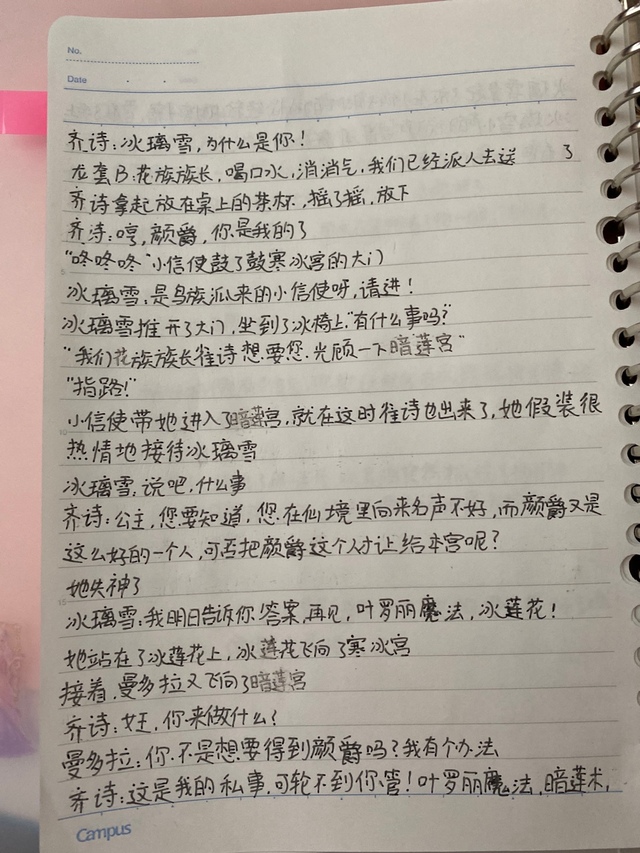 No.
Date
齐诗:冰璃雪,为什么是你!
龙套B:花族族长,喝口水,消消气,我们已经派人去送了
齐诗拿起放在桌上的茶杯,摇了摇,放下
齐诗:哼,颜爵,你是我的了
"咚咚咚"小信使鼓了鼓寒冰宫的大门
冰璃雪:是鸟族派来的小信使呀,请进!
冰璃雪推开了大门,坐到了冰椅上"有什么事吗?"
"我们花族族长雀诗想要您光顾一下暗莲宫"
"指路!"
小信使带她进入了暗莲宫,就在这时雀诗也出来了,她假装很
热情地接待冰璃雪
冰璃雪:说吧,什么事
齐诗:公主,您要知道,您在仙境里向来名声不好,而颜爵又是
这么好的一个人,可否把颜爵这个人才让给本宫呢?
她失神了
冰璃雪:我明日告诉你答案,再见,叶罗丽魔法,冰莲花!
她站在了冰莲花上,冰莲花飞向了寒冰宫
接着,曼多拉又飞向了暗莲宫
齐诗:女王,你来做什么?
曼多拉:你不是想要得到颜爵吗?我有个办法
齐诗:这是我的私事,可轮不到你管!叶罗丽魔法,暗莲术,
Campus